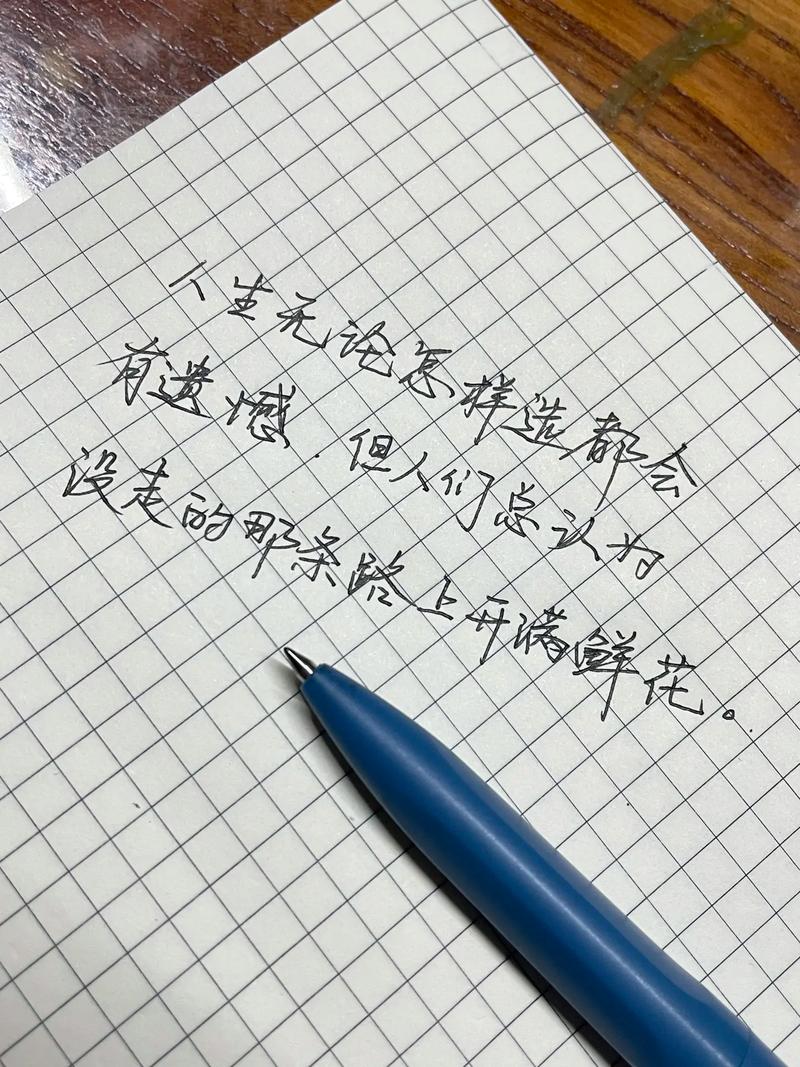 人生无论怎样选都会
有遗憾.但人们总认为
没走的那条路上开满鲜花。